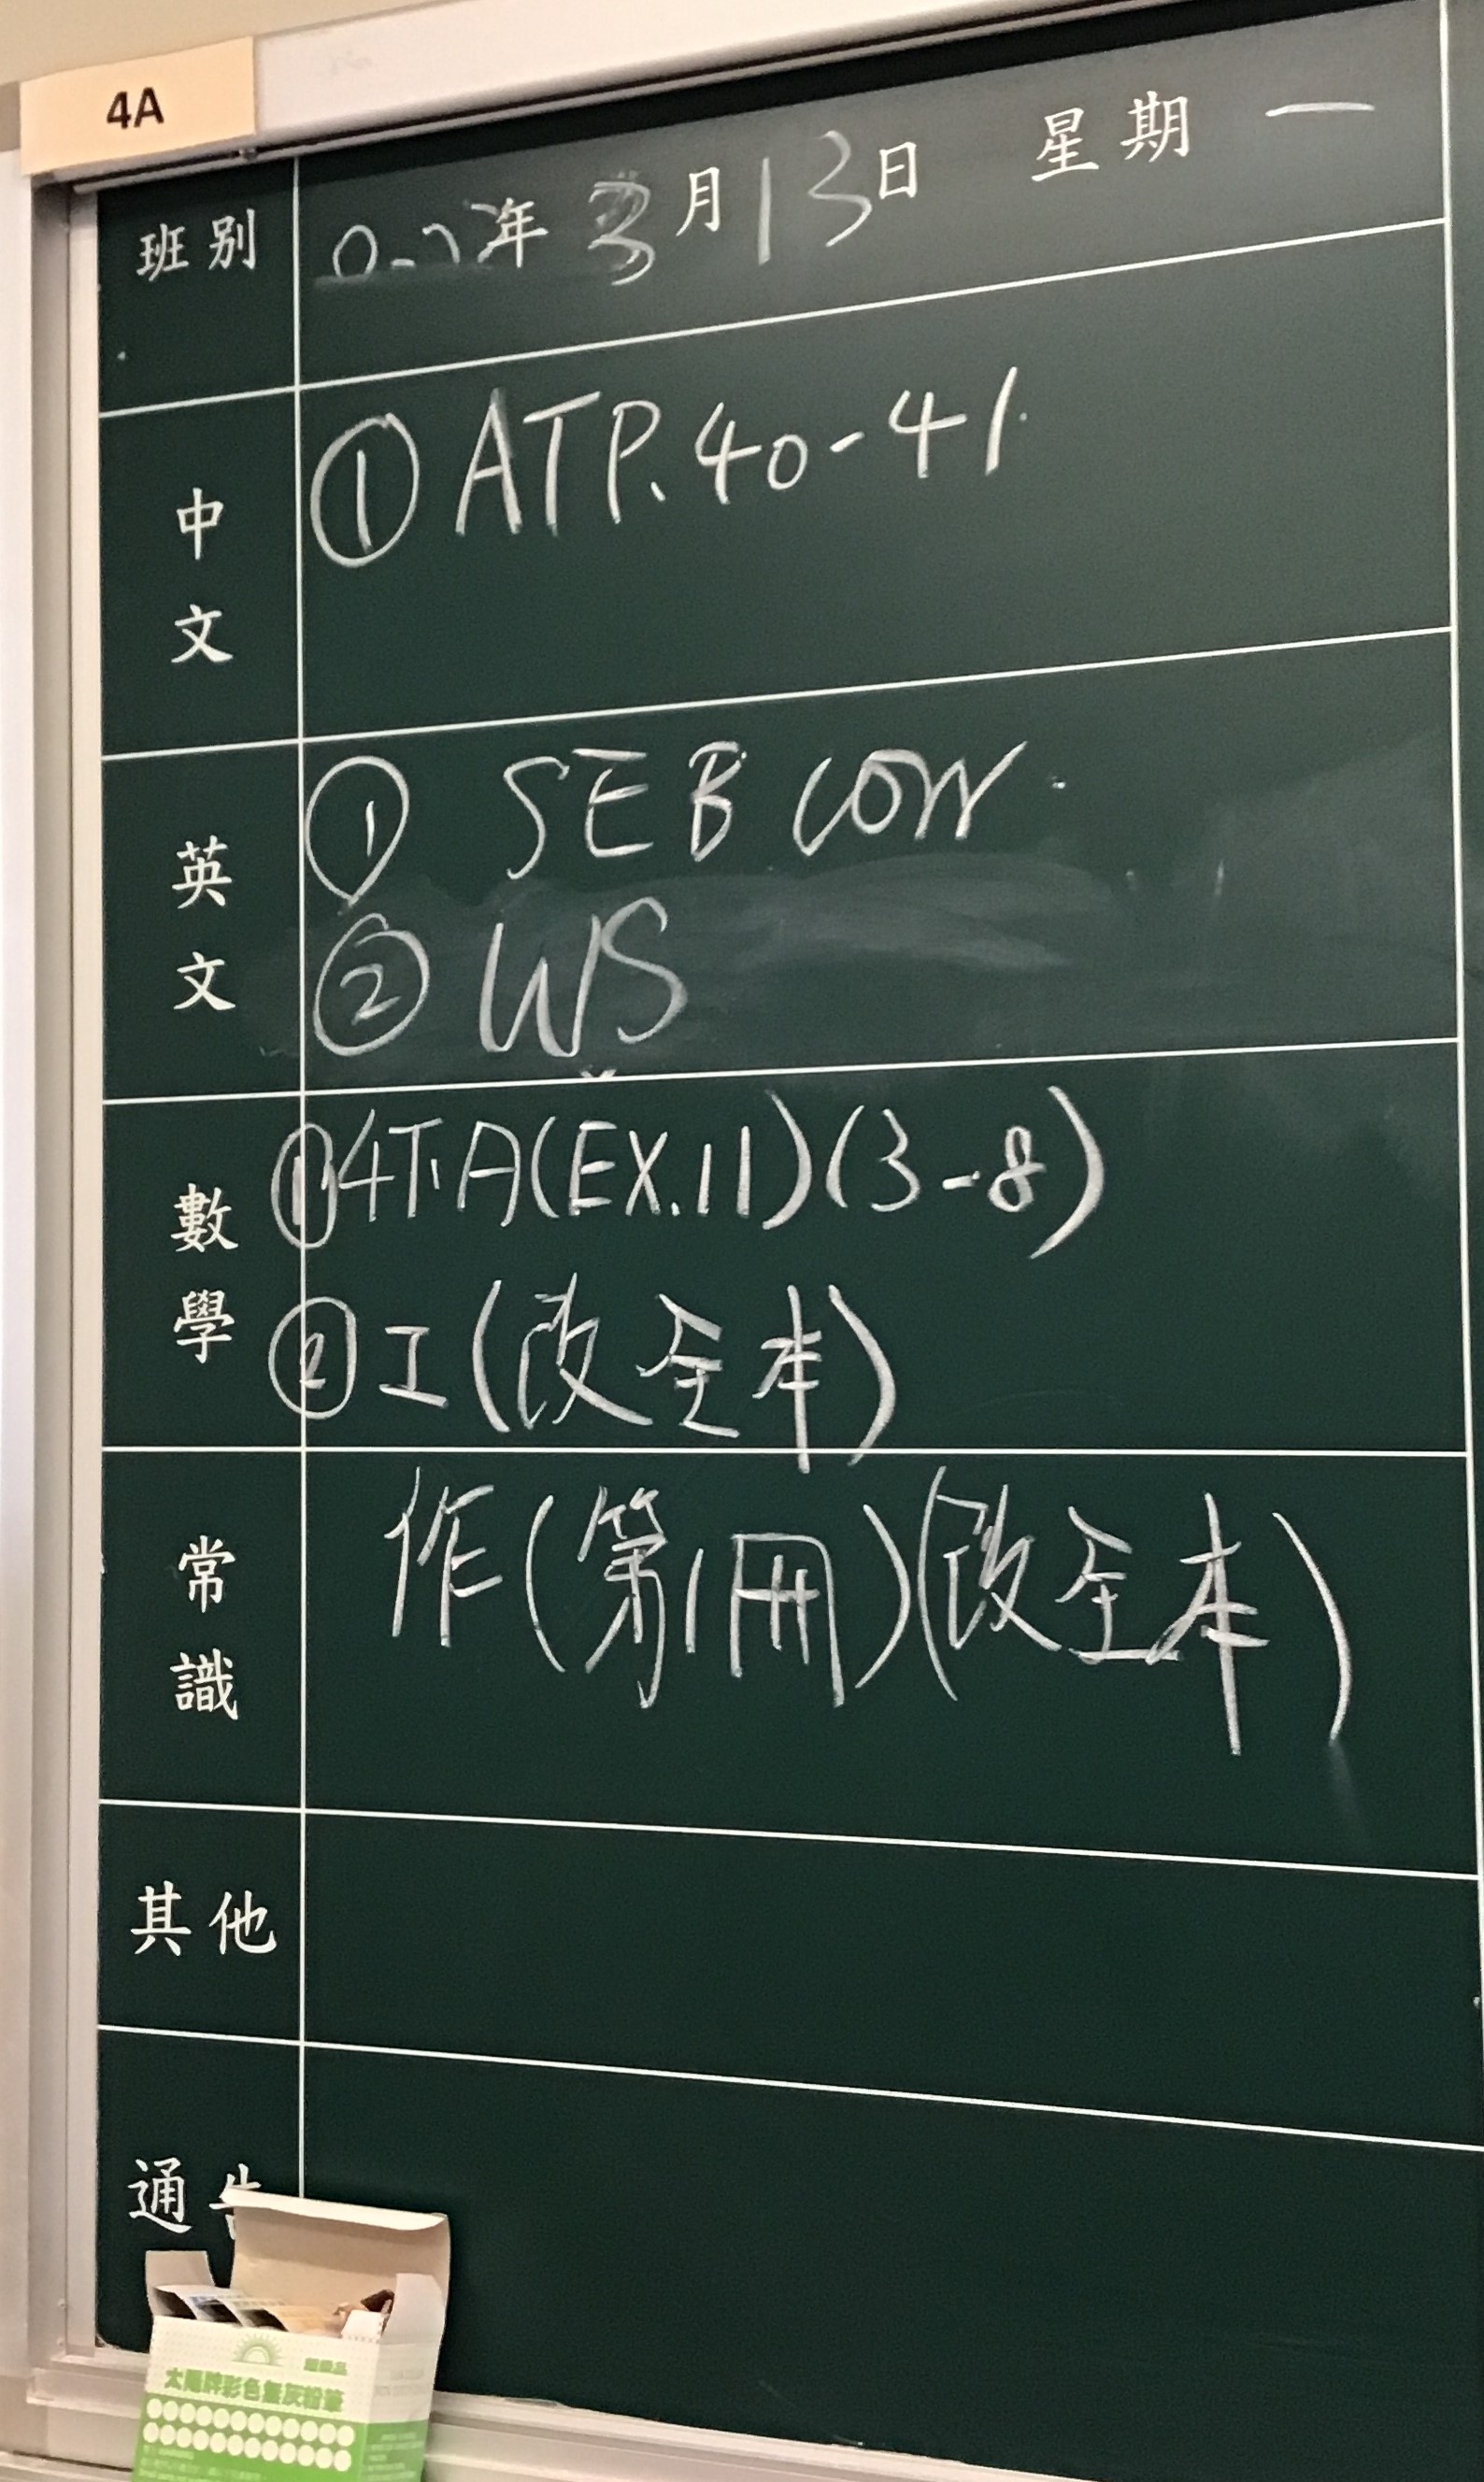 4A
班別 年 3 月 13 日 星期 一
中文 ① ATP.40-41
英文 ① SEB corr
② WS
數學 ① 4下A(EX.11)(3-8)
② 工(改全本)
常識 作(第1冊)(改全本)
其他
通告
太陽牌彩色無灰粉筆